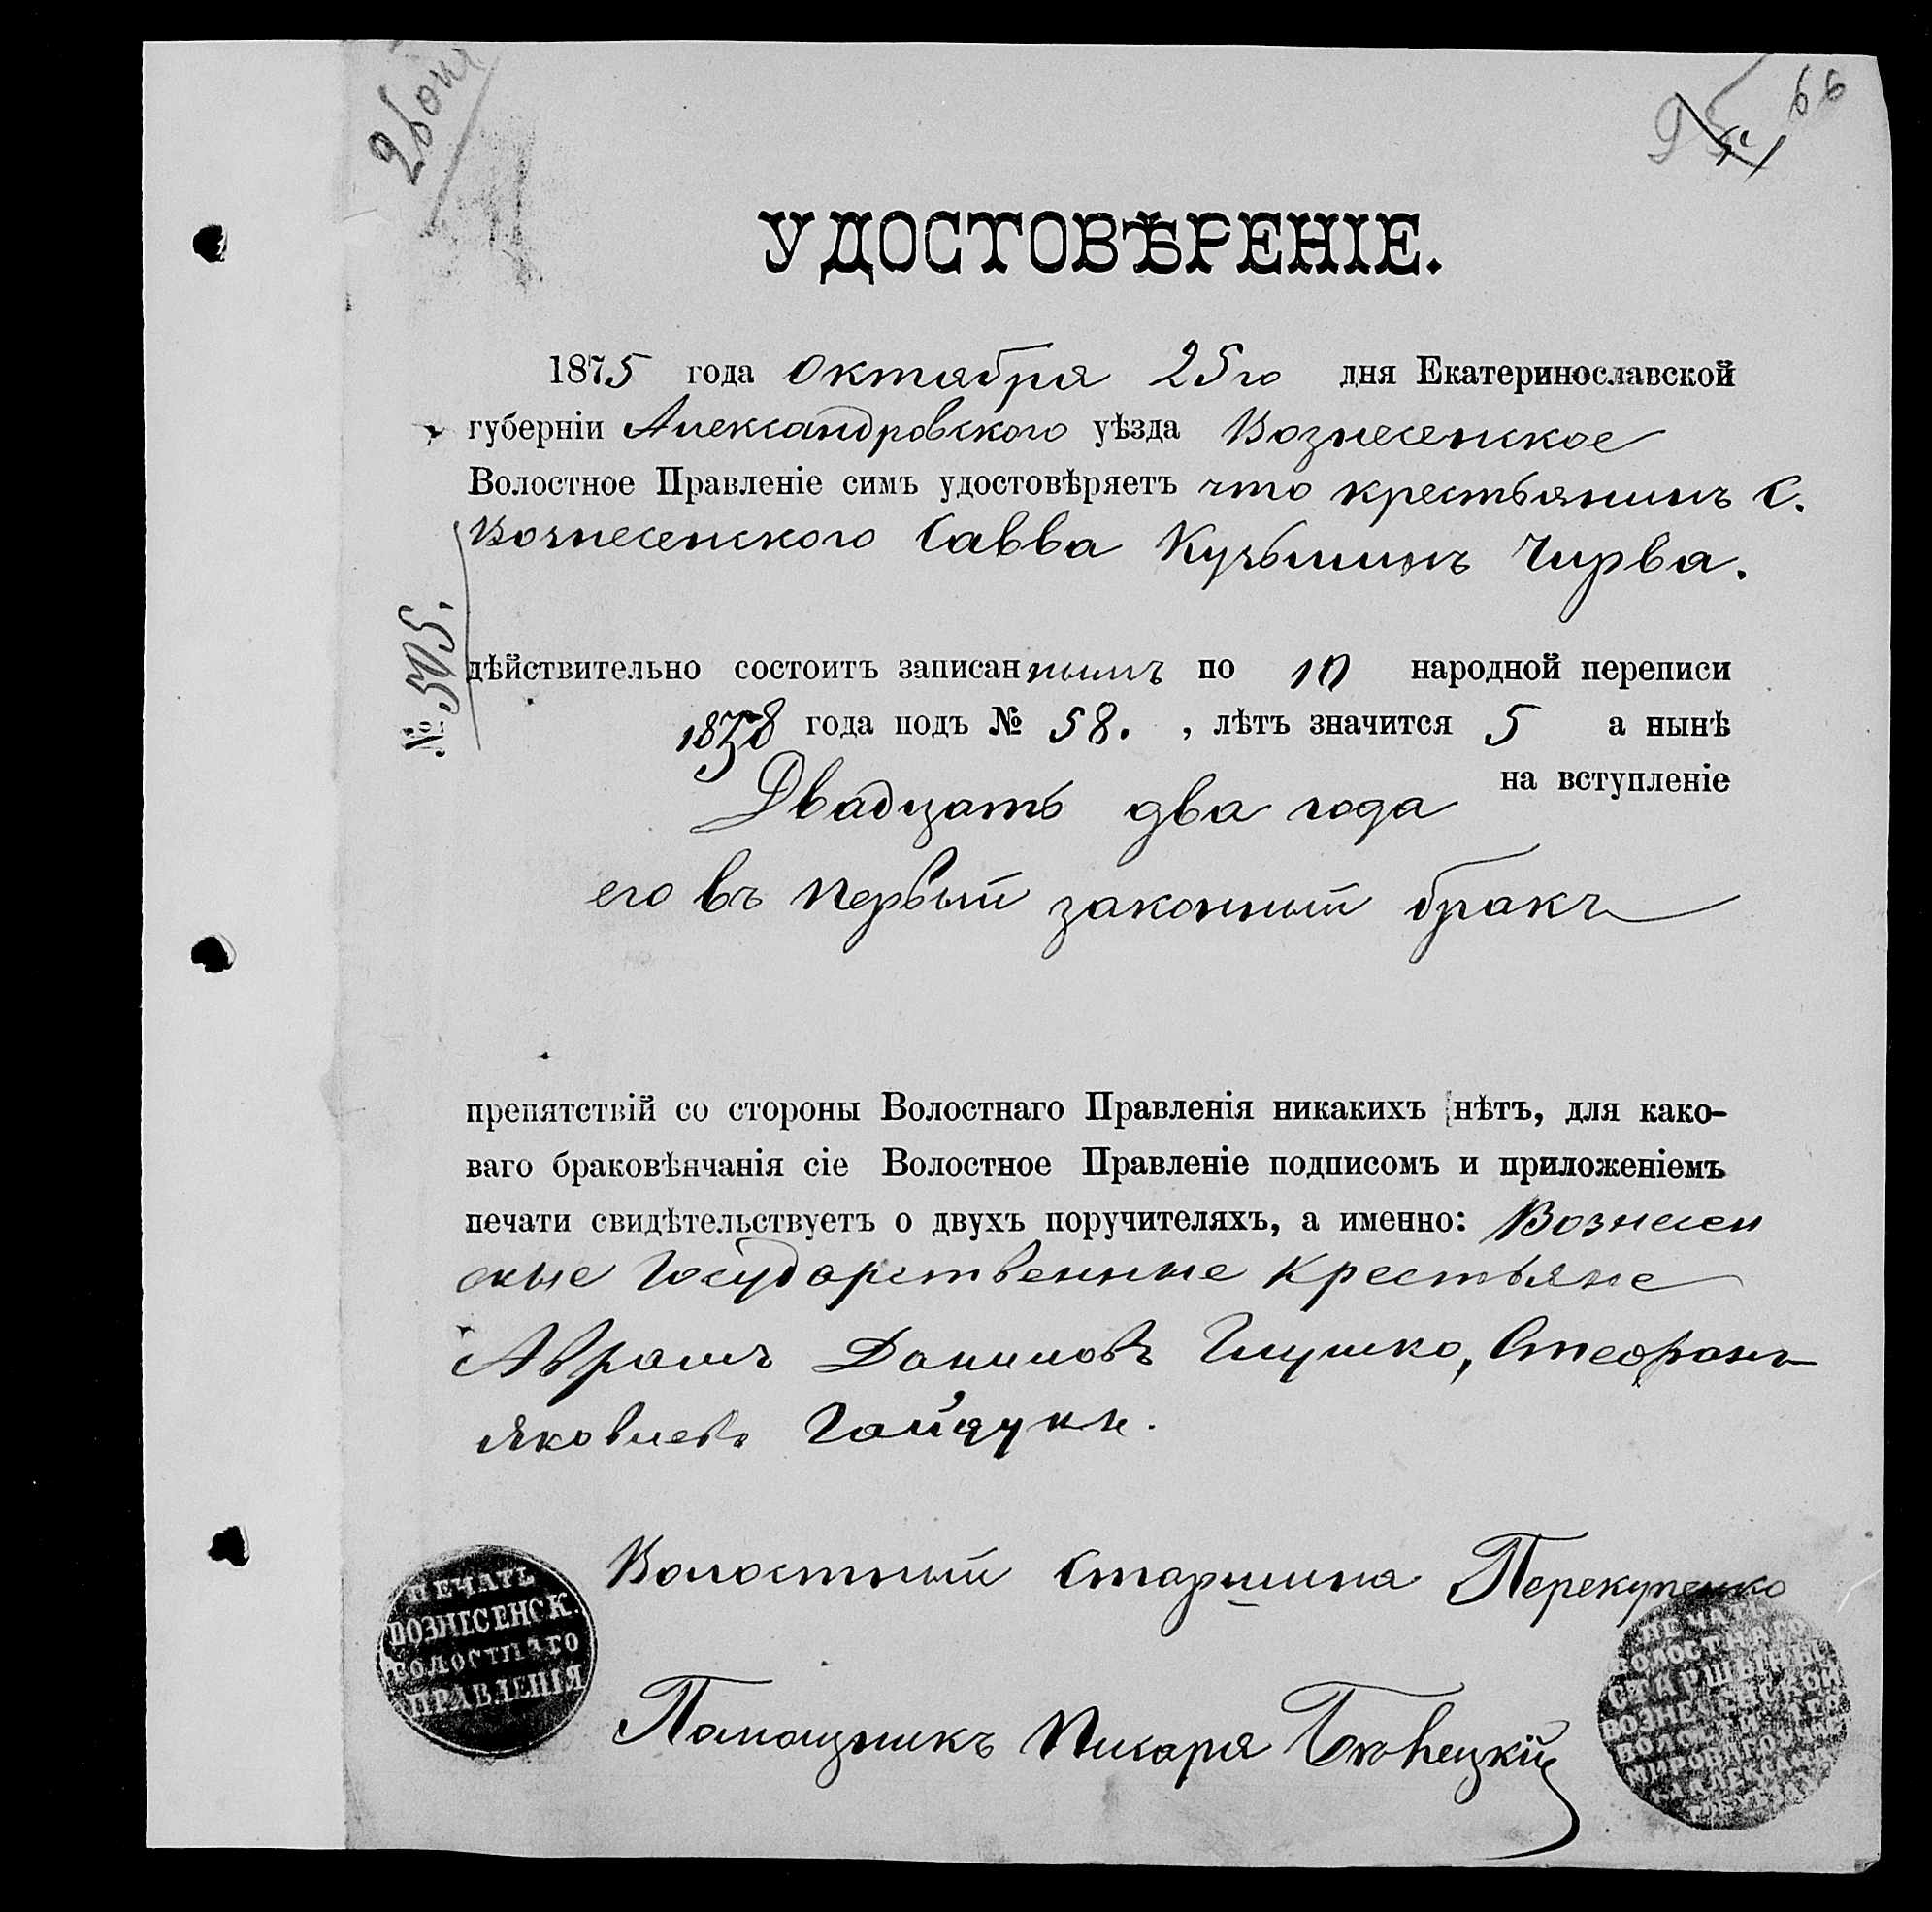 66
УДОСТОВѢРЕНІЕ.
1875 года Октября 25го дня Екатеринославской
губерніи Александровского уѣзда Вознесенское
Волостное Правленіе симъ удостовѣряетъ что крестьянинъ С.
Вознесенского Савва Кузьминъ Чирва.
№ 505.
дѣйствительно состоитъ записаннымъ по 10 народной переписи
1858 года подъ № 58. , лѣтъ значится 5 а нынѣ
Двадцать два года на вступленіе
его въ первый законный бракъ
препятствій со стороны Волостнаго Правленія никакихъ нѣтъ, для како-
ваго браковѣнчанія сіе Волостное Правленіе подписомъ и приложеніемъ
печати свидѣтельствуетъ о двухъ поручителяхъ, а именно: Вознесен
скые Государственные Крестьяне
Аврамъ Даниловъ Глушко, Стефанъ
Яковлевъ Гайдукъ.
Волостный Старшина Перекупенко
Помощникъ Писаря
ПЕЧАТЬ
ВОЗНЕСЕНСК.
ВОЛОСТНАГО
ПРАВЛЕНІЯ
ПЕЧАТЬ
ВОЛОСТНАГО
СТАРШИНЫ
ВОЗНЕСЕНСКОЙ
ВОЛОСТИ